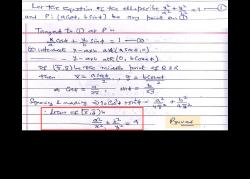 Let the Equation of the ellipse is x²/a² + y²/b² = 1 —①
and P: (a cost, b sint) be any point on ①
Tangent to ① at P is
x/a cost + y/b sint = 1 —②
② intersect x-axis at A(a/cost, 0)
y-axis at B(0, b/sint)
If (x̄, ȳ) be the middle point of
then x̄ = a/2cost , ȳ = b/2sint
⇒ cost = a/2x̄ , sint = b/2ȳ
Squaring & adding ⇒ 1 = cos²t + sin²t = a²/4x̄² + b²/4ȳ²
∴ locus of (x̄, ȳ) is
a²/x² + b²/y² = 4
Proved